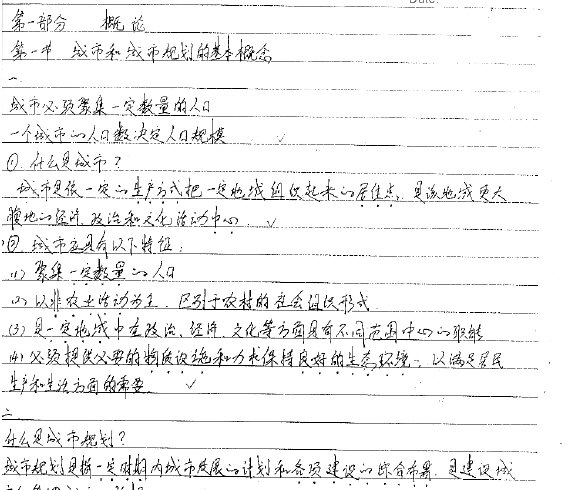 Date:
第一部分 概论
第一节 城市和城市规划的基本概念
一
城市必须聚集一定数量的人口
一个城市的人口数决定人口规模
① 什么是城市?
城市是依一定的生产方式把一定地域组织起来的居住点,是该地域更大
腹地的经济、政治和文化活动中心。
② 城市应具有以下特征:
(1) 聚集一定数量的人口
(2) 以非农业活动为主,区别于农村的社会组织形式
(3) 是一定地域中在政治、经济、文化等方面具有不同范围中心的职能
(4) 必须提供必要的物质设施和力求保持良好的生态环境,以满足居民
生产和生活方面的需要
二
什么是城市规划?
城市规划是指一定时期内城市发展的计划和各项建设的综合布署,是建设城